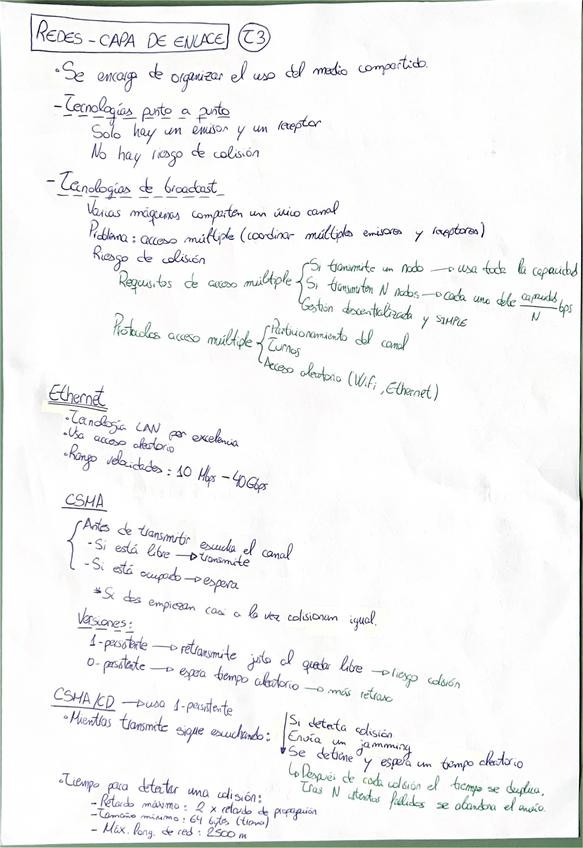 REDES - CAPA DE ENLACE T3
• Se encarga de organizar el uso del medio compartido.
- Tecnologías punto a punto
Solo hay un emisor y un receptor
No hay riesgo de colisión
- Tecnologías de broadcast
Varias máquinas comparten un único canal
Problema: acceso múltiple (coordinar múltiples emisores y receptores)
Riesgo de colisión
Requisitos de acceso múltiple { Si transmite un nodo → usa toda la capacidad
Si transmiten N nodos → cada uno debe capacidad/N bps
Gestión descentralizada y SIMPLE
Protocolos acceso múltiple { Particionamiento del canal
Turnos
Acceso aleatorio (WiFi, Ethernet)
Ethernet
• Tecnología LAN por excelencia
• Usa acceso aleatorio
• Rango velocidades: 10 Mbps - 40 Gbps
CSMA
{ Antes de transmitir escucha el canal
- Si está libre → transmite
- Si está ocupado → espera
* Si dos empiezan casi a la vez colisionan igual.
Versiones:
1-persistente → retransmite justo al quedar libre → riesgo colisión
0-persistente → espera tiempo aleatorio → más retraso
CSMA/CD → usa 1-persistente
• Mientras transmite sigue escuchando: Si detecta colisión
Envía un jammming
Se detiene y espera un tiempo aleatorio
↳ Después de cada colisión el tiempo se duplica.
Tras N intentos fallidos se abandona el envío.
• Tiempo para detectar una colisión:
- Retardo máximo: 2 x retardo de propagación
- Tamaño mínimo: 64 bytes (trama)
- Máx. long. de red: 2500 m